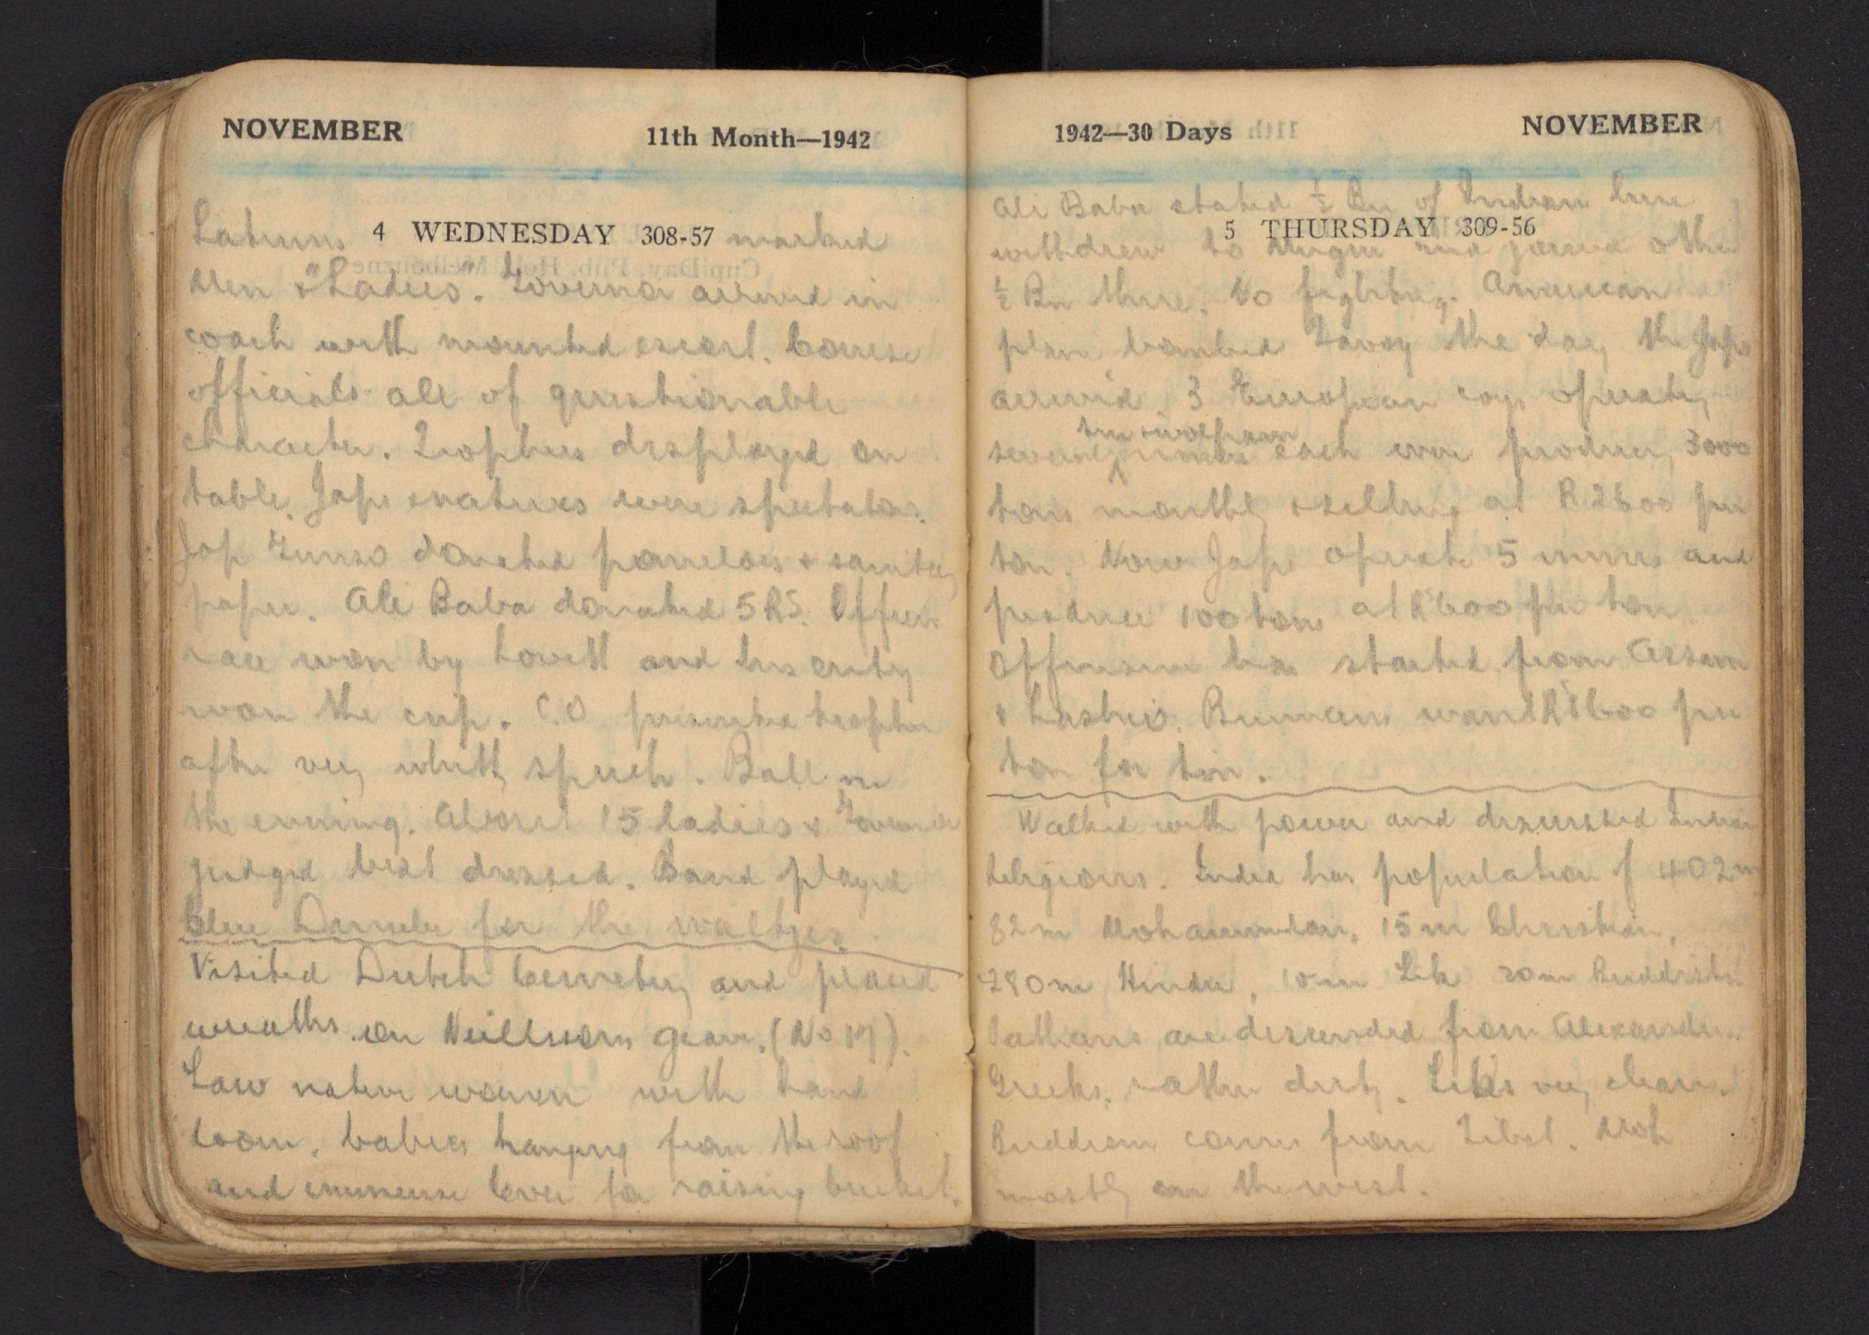 NOVEMBER 11th Month—1942
Latrines 4 WEDNESDAY 308-57 marked
Men & "Ladies". Governor arrived in
coach with mounted escort. Course
officials all of questionable
character. Trophies displayed on
table. Japs & natives were spectators.
Jap Gunso donated pomeloes & sanitary
paper. Ali Baba donated 5 RS. Officers
race won by Lovett and his entry
won the cup. C.O. presented trophies
after very witty speech. Ball in
the evening. About 15 ladies & Governor
judged best dressed. Band played
Blue Danube for the waltzes.
Visited Dutch Cemetery and placed
wreaths on grave. (No 17).
Saw native women with hand
loom, babies hanging from the roof
and immense lever for raising bucket.
1942—30 Days NOVEMBER
Ali Baba stated ½ Bn of Indians here
5 THURSDAY 309-56
withdrew to Mergui and joined other
½ Bn there. No fighting. American
plane bombed Tavoy the day the Japs
arrived. 3 European coys operating
tin & wolfram
several mines each were producing 3000
tons monthly & selling at R 2600 per
ton. Now Japs operate 5 mines and
produce 100 tons at Rs 600 per ton.
Offensive has started from Assam
& Lashio. Burmans want Rs 1600 per
ton for tin.
Walked with power and discussed Indian
religions. India has population of 402m
82m Mohammedan, 15m Christian,
280m Hindu, 10m Sik 20m Buddists.
Pathans are descended from Alexanders
Greeks, rather dirty. Siks very clean.
Buddism comes from Tibet. Moh
mostly on the west.